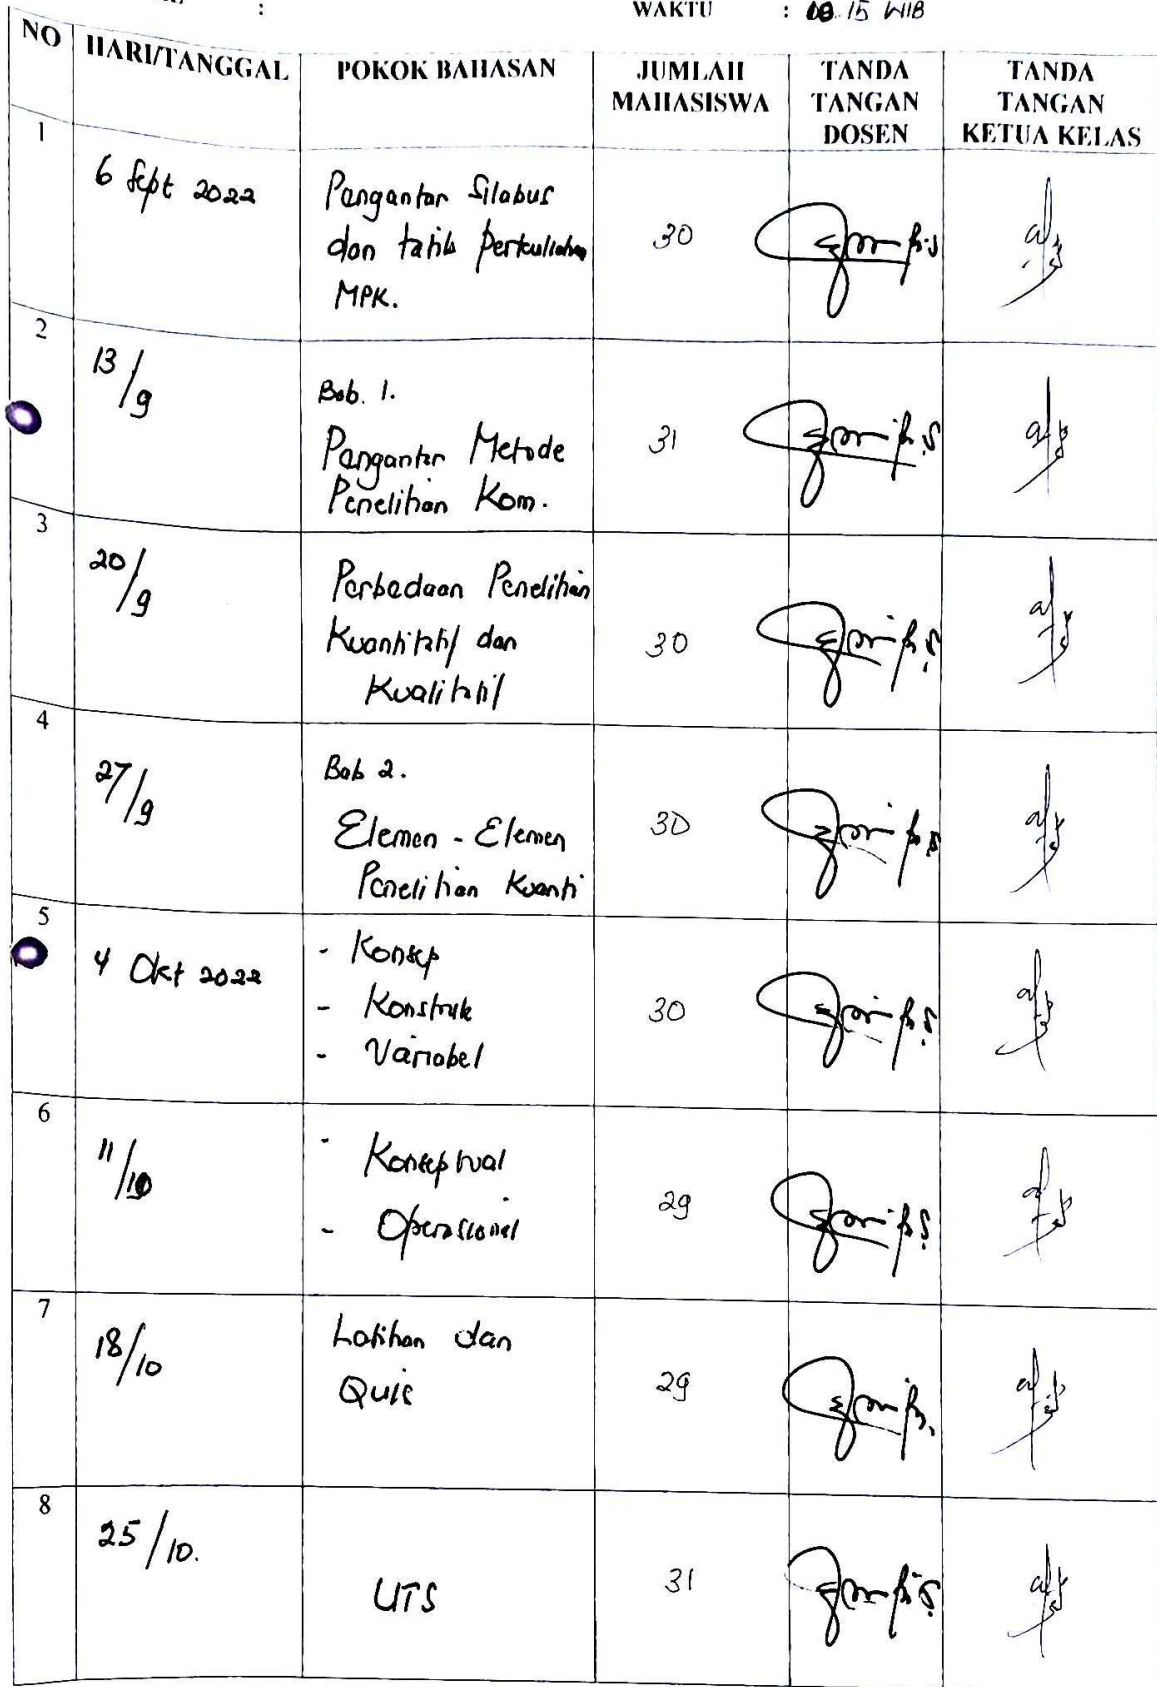 WAKTU : 08.15 WIB
NO HARI/TANGGAL POKOK BAHASAN JUMLAH MAHASISWA TANDA TANGAN DOSEN TANDA TANGAN KETUA KELAS
1
6 Sept 2022
Pengantar Silabus
dan tatib perkuliahan
MPK.
30
2
13/9
Bab. 1.
Pengantar Metode
Penelitian Kom.
31
3
20/9
Perbedaan Penelitian
Kuantitatif dan
Kualitatif
30
4
27/9
Bab 2.
Elemen - Elemen
Penelitian Kuanti
30
5
4 Okt 2022
- Konsep
- Konstruk
- Variabel
30
6
11/10
- Konseptual
- Operasional
29
7
18/10
Latihan dan
Quis
29
8
25/10.
UTS
31